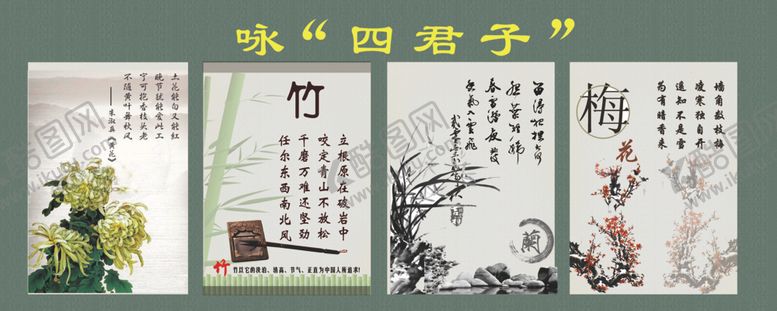 咏“四君子”
土花能白又能红
晚节犹能爱此工
宁可抱香枝头老
不随黄叶舞秋风
——朱淑真《黄花》
竹
立根原在破岩中
咬定青山不放松
千磨万难还坚劲
任尔东西南北风
竹 竹以它的淡泊、清高、节气、正直为中国人所追求!
蘭
梅
花
墙角数枝梅
凌寒独自开
遥知不是雪
为有暗香来